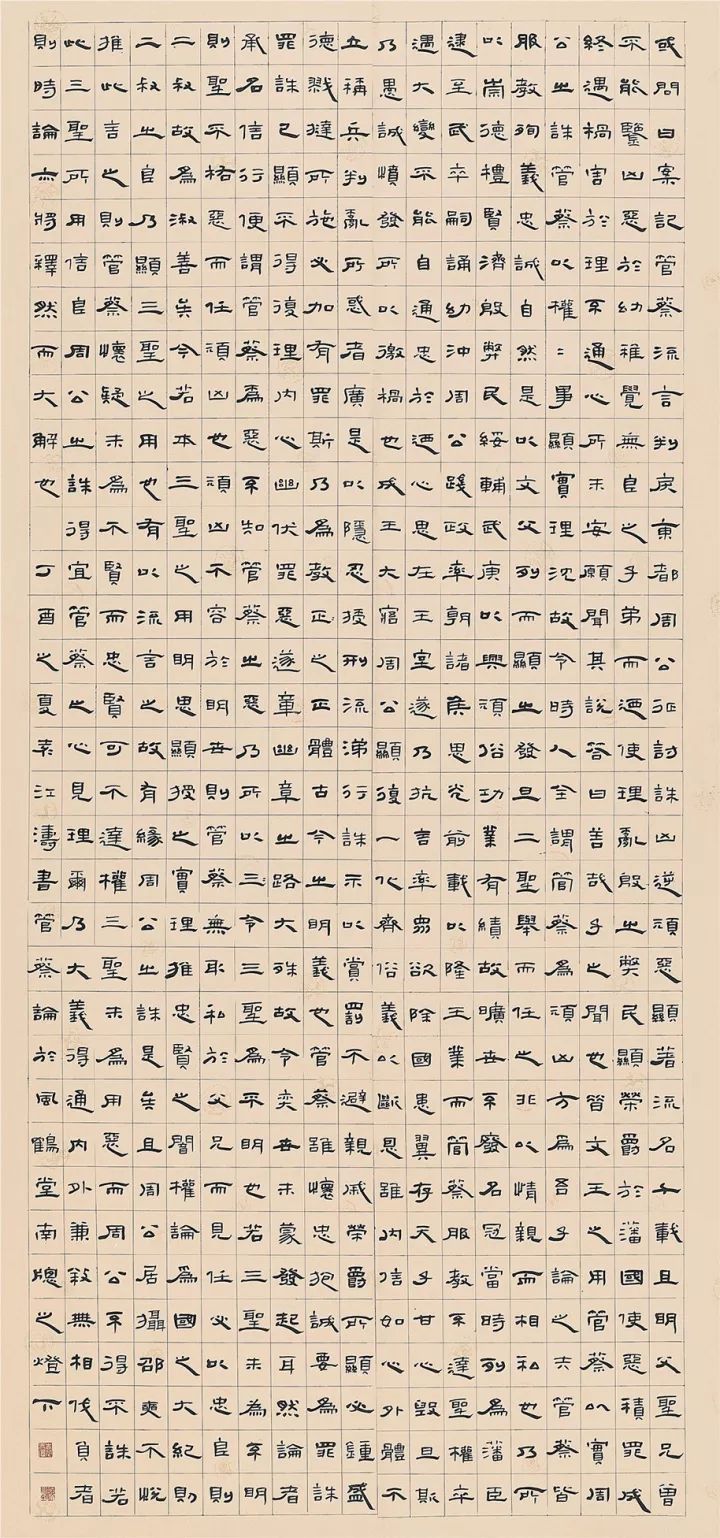 或問曰案記管蔡流言判戾東都周公征討誅凶逆頑惡顯著流名千載且明父聖兄曾
不能鑒凶惡於幼稚覺無良之子弟而廼使理亂殷之弊民顯榮爵於藩國使惡積罪成
終遇禍害於理不通心所未安願聞其說答曰善哉子之聞也昔文王之用管蔡以實周
公之誅管蔡以權〻事顯實理沈故令時人全謂管蔡為頑凶方為吾子論之夫管蔡皆
服教殉義忠誠自然是以文父列而顯之發旦二聖舉而任之非以情親而相私也乃所
以崇德禮賢濟殷弊民綏輔武庚以興頑俗功業有績故曠世不廢名冠當時列為藩臣
逮至武卒嗣誦幼沖周公踐政率朝諸侯思光前載以隆王業而管蔡服教不達聖權卒
遇大變不能自通忠於廼心思在王室遂乃抗言率眾欲除國患翼存天子甘心毀旦斯
乃愚誠憤發所以徼禍也成王大寤周公顯復一化齊俗義以斷恩雖內信如心外體不
立稱兵叛亂所惑者廣是以隱忍授刑流涕行誅示以賞罰不避親戚榮爵所顯必鍾盛
德戮撻所施必加有罪斯乃為教正之正體古今之明義也管蔡雖懷忠抱誠要為罪誅
罪誅已顯不得復理內心幽伏罪惡遂章幽章之路大殊故令奕世未蒙發起耳然論者
承名信行便謂管蔡為惡不知管蔡之惡乃所以三令三聖為不明也若三聖未為不明
則聖不祐惡而任頑凶也頑凶不容於明世則管蔡無取私於父兄而見任必以忠良則
二叔故為淑善矣今若本三聖之用明思顯授之實理推忠賢之闇權論為國之大紀則
二叔之良乃顯三聖之用也有以流言之故有緣周公之誅是矣且周公居攝邵奭不悅
推此言之則管蔡懷疑未為不賢而忠賢可不達權三聖未為用惡而周公不得不誅若
此三聖所用信良周公之誅得宜管蔡之心見理爾乃大義得通內外兼叙無相伐負者
則時論亦將釋然而大解也 丁酉之夏素江濤書管蔡論於風鶴堂南牕之燈下